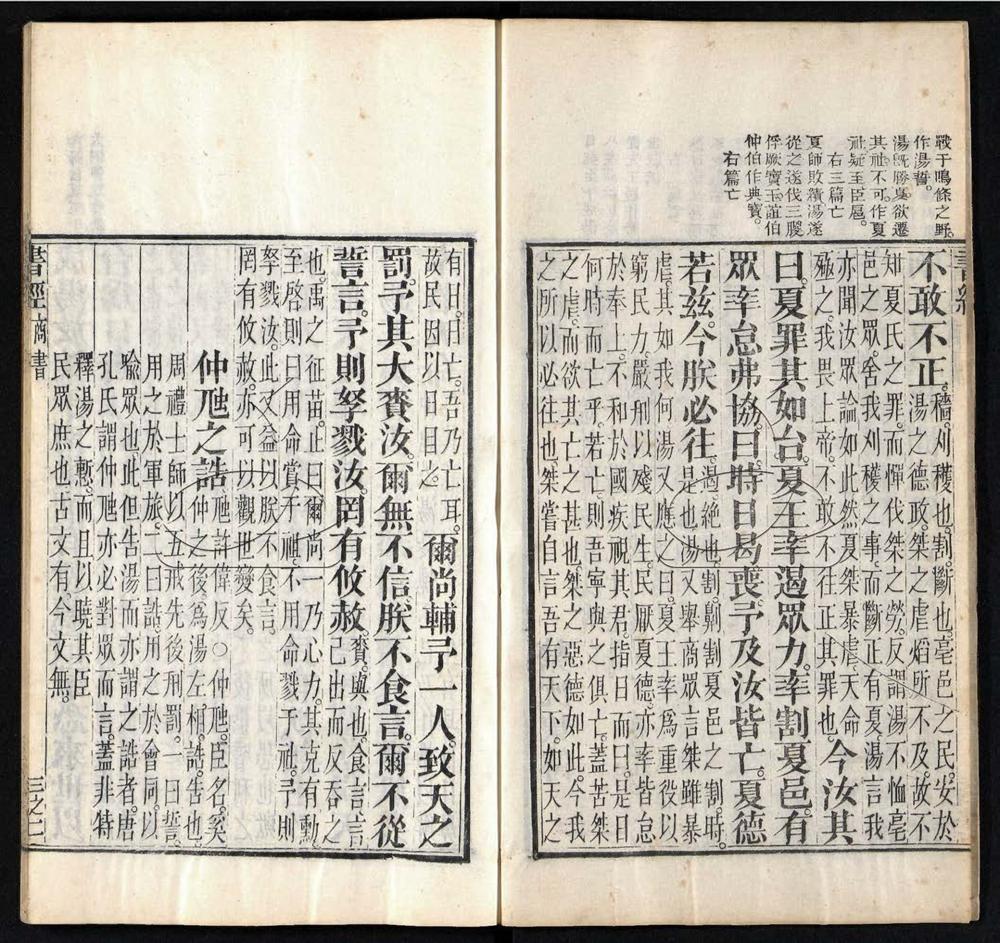 戰于鳴條之野。
作湯誓。
湯旣勝夏欲遷
其社不可作夏
社疑至臣扈。
右三篇亡
夏師敗績湯遂
從之遂伐三朡
俘厥寶玉誼伯
仲伯作典寶。
右篇亡
不敢不正。穡。刈穫也。割。斷也。亳邑之民。安於
湯之德政。桀之虐焰所不及。故不
知夏氏之罪。而憚伐桀之勞。反謂湯不恤亳
邑之眾。舍我刈穫之事。而斷正有夏湯言我
亦聞汝眾論如此然夏桀暴虐天命
殛之。我畏上帝。不敢不往正其罪也。今汝其
曰。夏罪其如台。夏王率遏眾力。率割夏邑。有
眾率怠弗協。曰。時日曷喪。予及汝皆亡。夏德
若兹。今朕必往。遏。絕也。割。劓割夏邑之割。時。
是也。湯又舉商眾言桀雖暴
虐。其如我何湯又應之曰夏王率爲重役以
窮民力。嚴刑以殘民生。民厭夏德。亦率皆怠
於奉上。不和於國疾視其君。指日而曰。是日
何時而亡乎。若亡。則吾寧與之俱亡。蓋苦桀
之虐。而欲其亡之甚也。桀之惡德如此。今我
之所以必往也。桀嘗自言吾有天下。如天之
有日。日亡。吾乃亡耳。
故民因以日目之。爾尚輔予一人。致天之
罰。予其大賚汝。爾無不信。朕不食言。爾不從
誓言。予則孥戮汝。罔有攸赦。賚。與也。食言。言
已出而反吞之
也。禹之征苗。止曰爾尚一乃心力。其克有勳
至啓則曰用命賞于祖。不用命戮于社。予則
孥戮汝。此又益以朕不食言。
罔有攸赦。亦可以觀世變矣。
仲虺之誥 虺許偉反。○仲虺臣名。奚
仲之後爲湯左相。誥。告也
周禮士師以五戒先後刑罰。一曰誓。
用之於軍旅。二曰誥。用之於會同。以
喩眾也。此但告湯而亦謂之誥者。唐
孔氏謂仲虺亦必對眾而言。蓋非特
釋湯之慙。而且以曉其臣
民眾庶也古文有今文無。
書經 商書 三之二